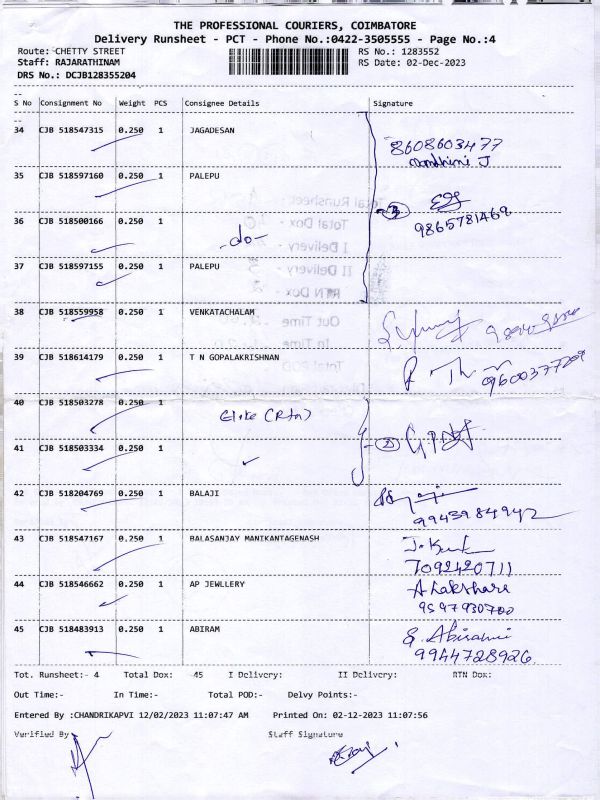 THE PROFESSIONAL COURIERS, COIMBATORE
Delivery Runsheet - PCT - Phone No.:0422-3505555 - Page No.:4
Route: CHETTY STREET RS No.: 1283552
Staff: RAJARATHINAM RS Date: 02-Dec-2023
DRS No.: DCJB128355204
S No Consignment No Weight PCS Consignee Details Signature
34 CJB 518547315 0.250 1 JAGADESAN 8608603477
Nandhini J
35 CJB 518597160 0.250 1 PALEPU
Total Runsheet
36 CJB 518500166 0.250 1 -do- 9865781469
Total Dox -
I Delivery -
37 CJB 518597155 0.250 1 PALEPU
II Delivery -
RTN Dox -
38 CJB 518559958 0.250 1 VENKATACHALAM
Out Time
In Time
39 CJB 518614179 0.250 1 T N GOPALAKRISHNAN 9600377209
Total POD
40 CJB 518503278 0.250 1
41 CJB 518503334 0.250 1
42 CJB 518204769 0.250 1 BALAJI
9943984942
43 CJB 518547167 0.250 1 BALASANJAY MANIKANTAGENASH
7092420711
44 CJB 518546662 0.250 1 AP JEWLLERY
9597930700
45 CJB 518483913 0.250 1 ABIRAM S. Abirami
9944728926
Tot. Runsheet:- 4 Total Dox: -45 I Delivery: II Delivery: RTN Dox:
Out Time:- In Time:- Total POD:- Delvy Points:-
Entered By :CHANDRIKAPVI 12/02/2023 11:07:47 AM Printed On: 02-12-2023 11:07:56
Verified By Staff Signature